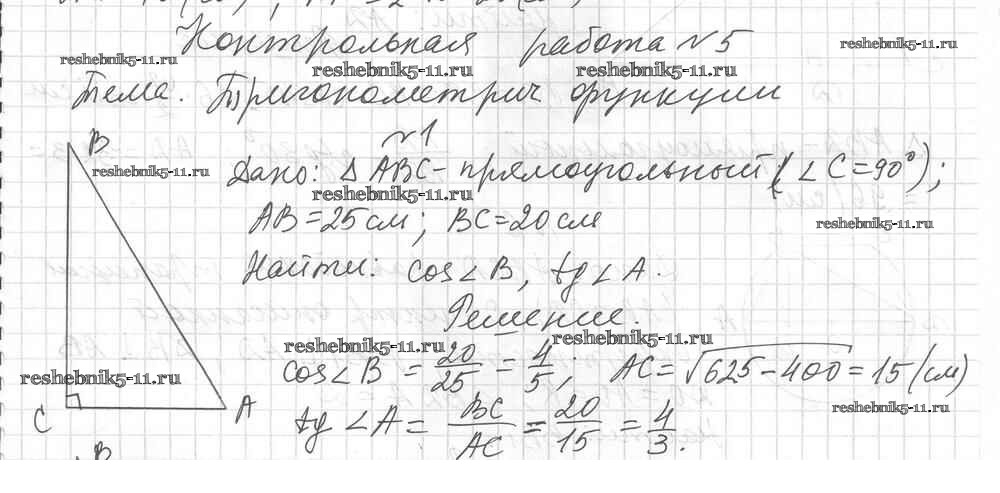 Контрольная работа №5
Тема. Тригонометрич функции
№1
Дано: Δ ABC - прямоугольный (∠C = 90°);
AB = 25 см; BC = 20 см
Найти: cos∠B, tg∠A.
Решение.
cos∠B = 20/25 = 4/5; AC = √625-400 = 15 (см)
tg∠A = BC/AC = 20/15 = 4/3.
B
C
A
B
reshebnik5-11.ru
reshebnik5-11.ru
reshebnik5-11.ru
reshebnik5-11.ru
reshebnik5-11.ru
reshebnik5-11.ru
reshebnik5-11.ru
reshebnik5-11.ru
reshebnik5-11.ru
reshebnik5-11.ru
reshebnik5-11.ru